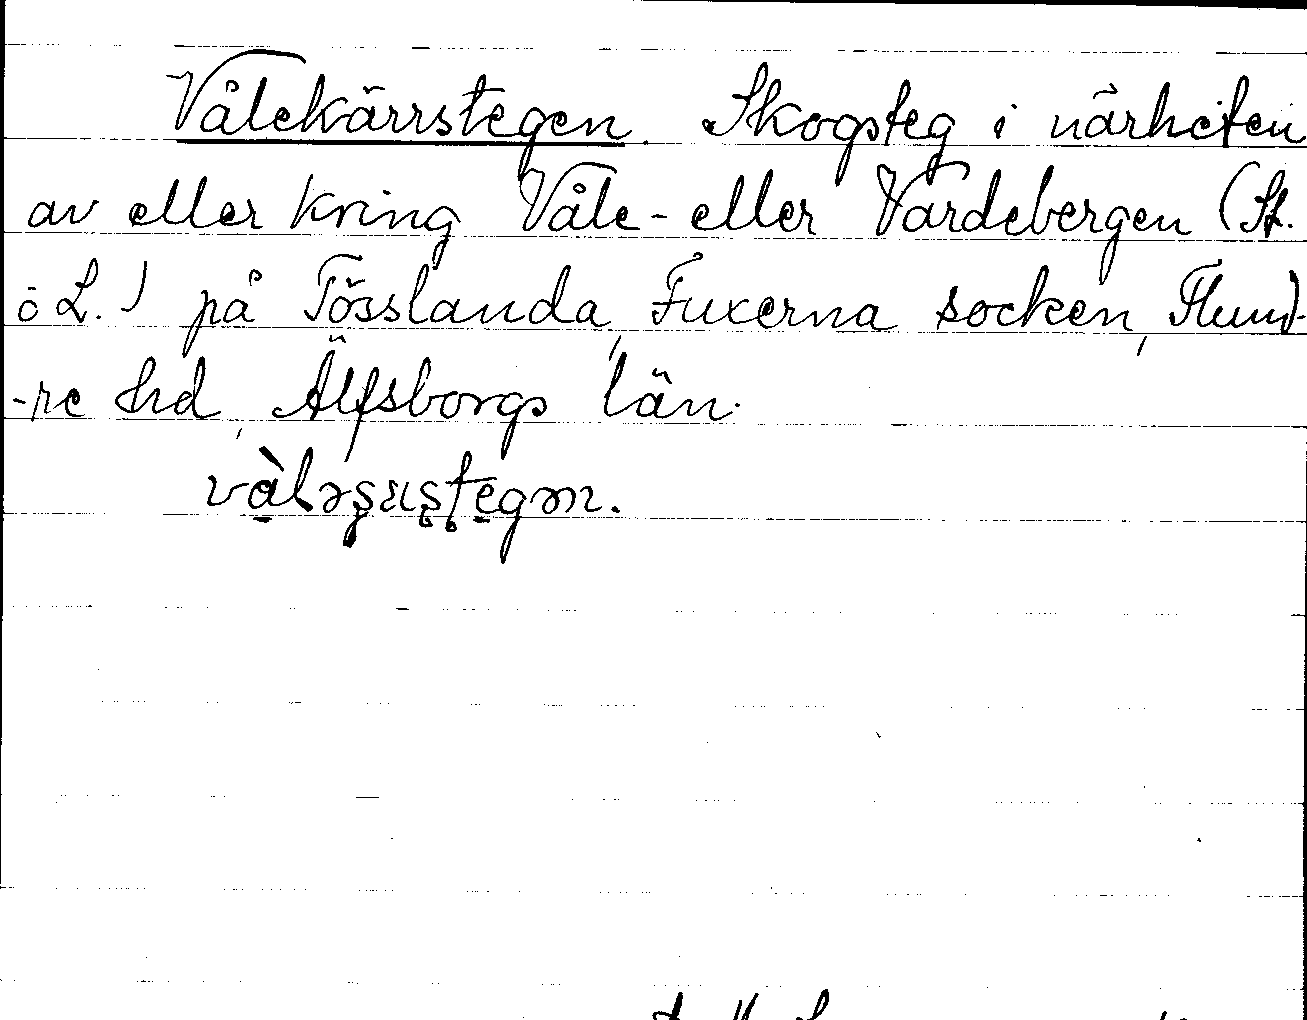 Vålekärrstegen. Skogsteg i närheten
av eller kring Våle- eller Vardebergen (St.
o L.) på Tösslanda, Fuxerna socken, Flund-
-re hd, Älfsborgs län.